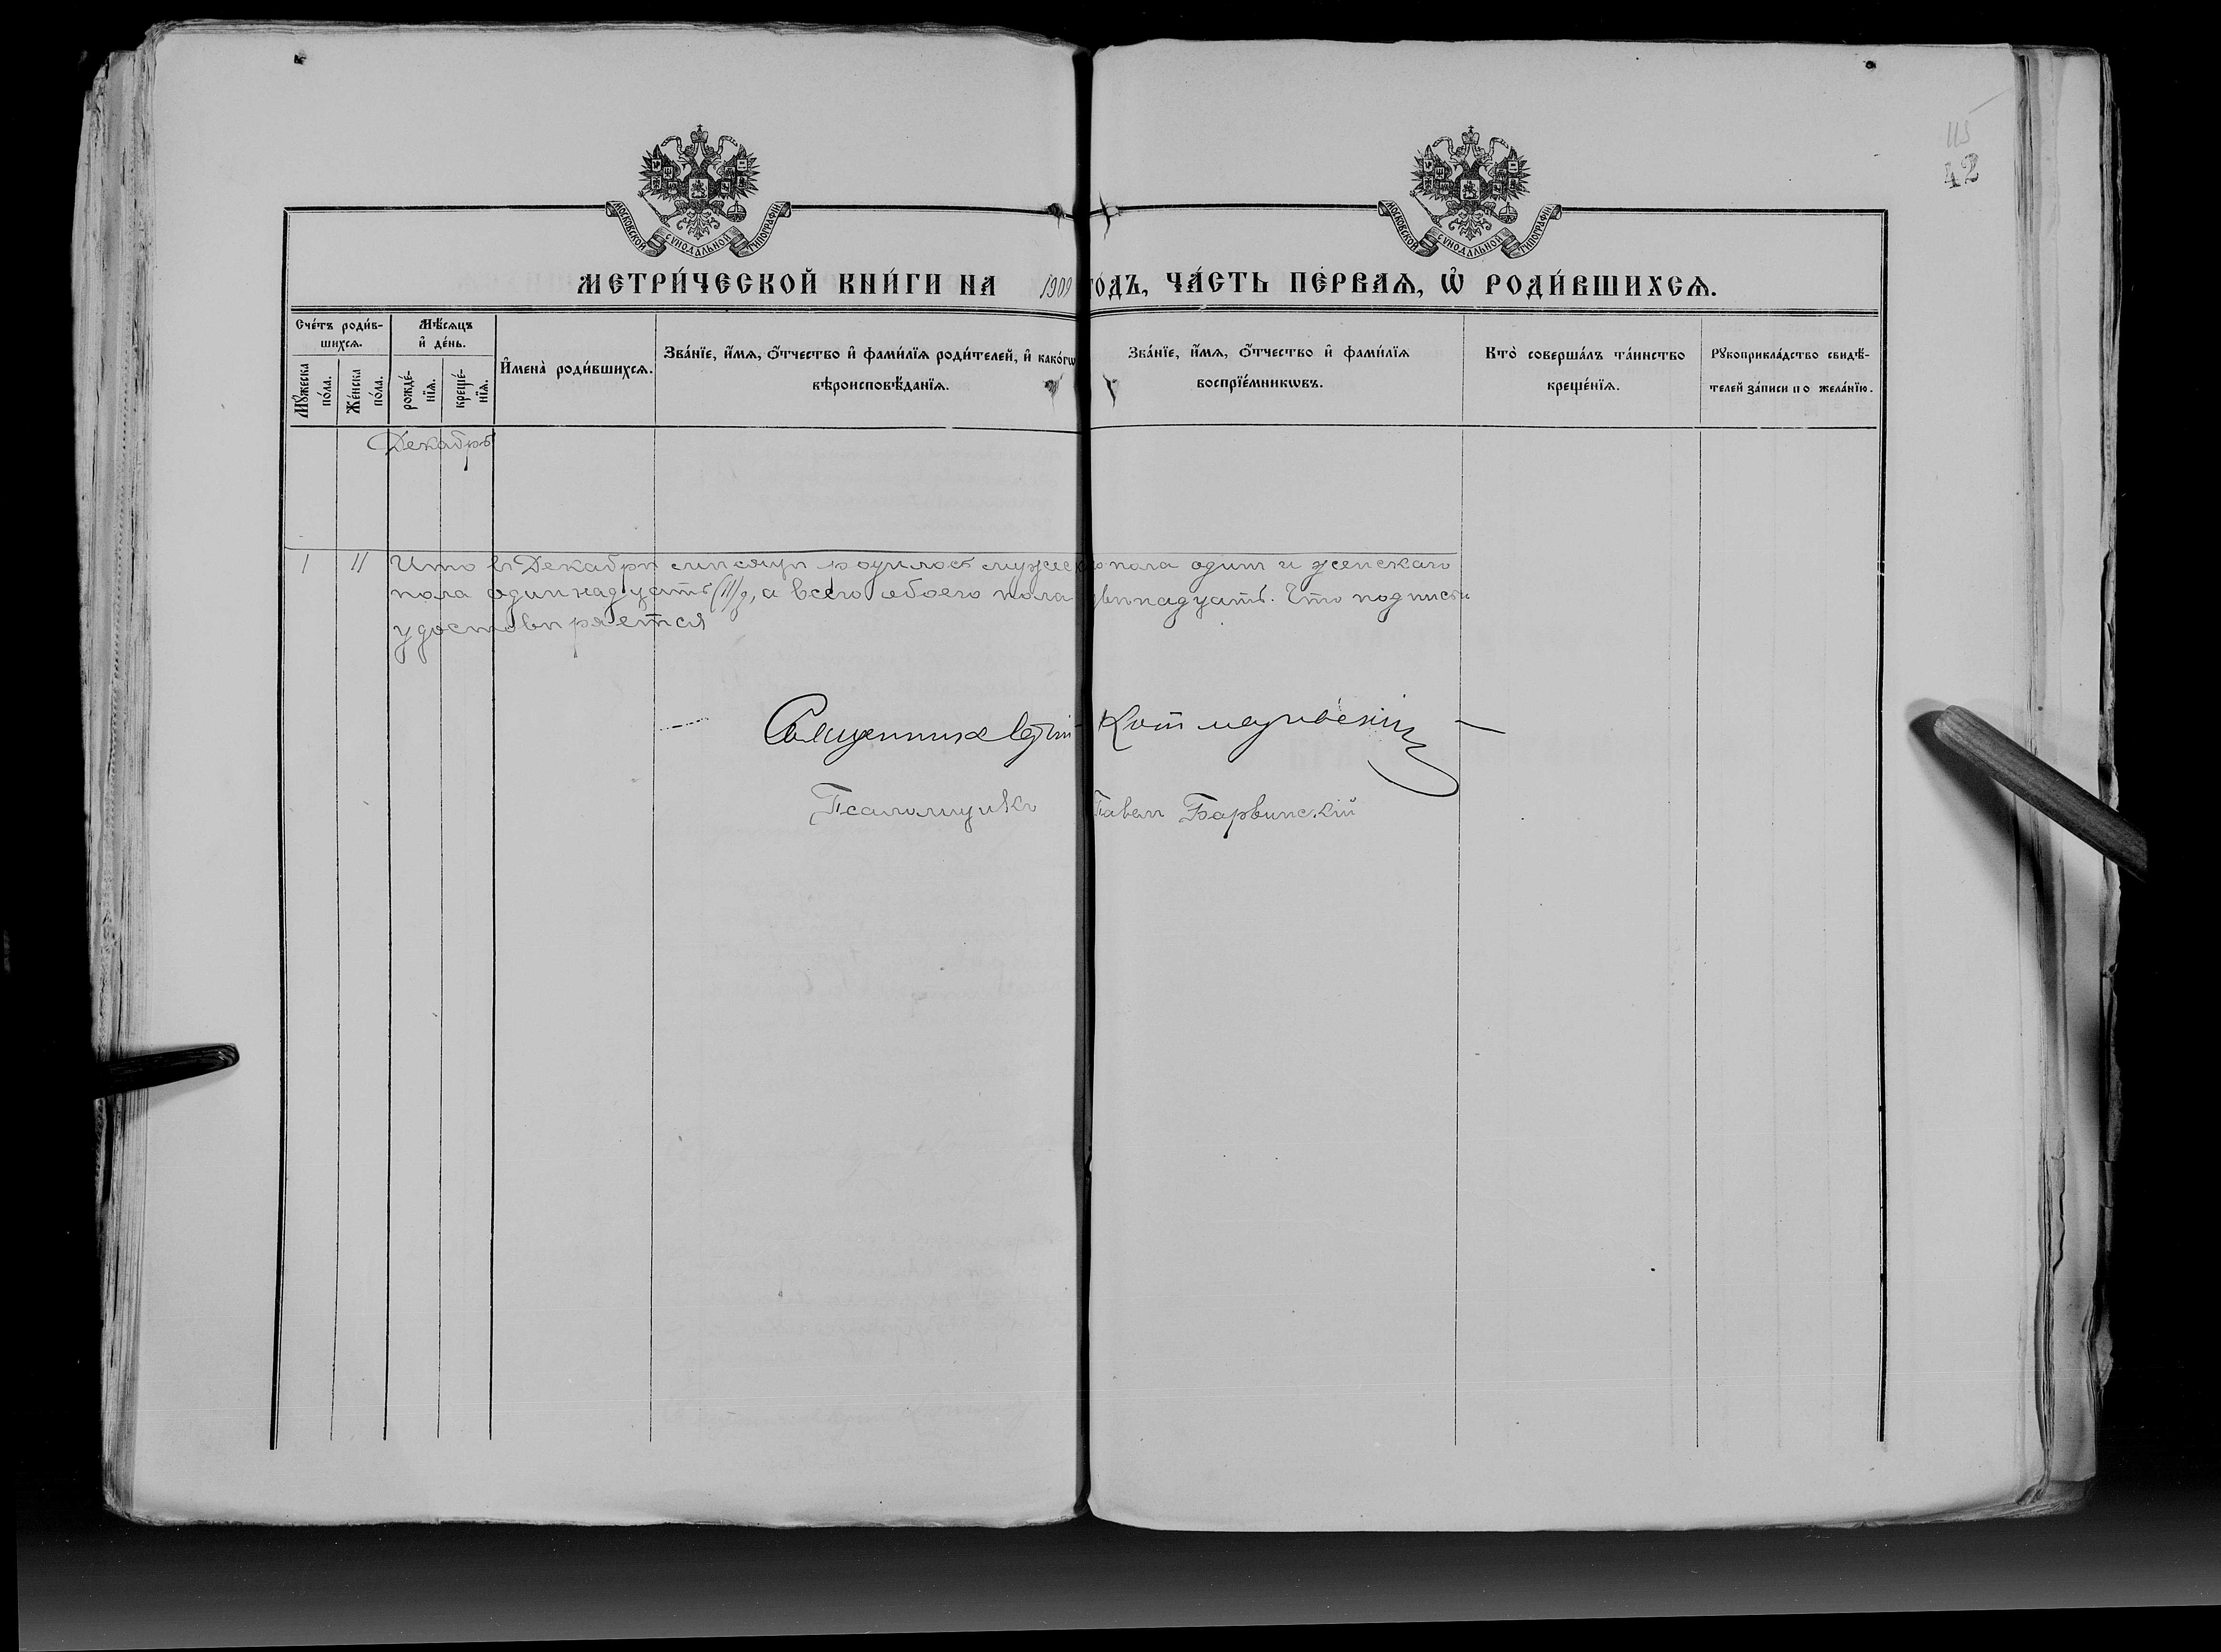 115
42
МОСКОВСКОЙ СѴНОДАЛЬНОЙ ТИПОГРАФІИ
МОСКОВСКОЙ СѴНОДАЛЬНОЙ ТИПОГРАФІИ
МЕТРИ́ЧЕСКОЙ КНИ́ГИ НА 1909 ГО́ДЪ, ЧА́СТЬ ПЕ́РВАѦ, Ѽ РОДИ́ВШИХСѦ.
Сче́тъ роди́в-
шихсѧ.
Мꙋ́жеска
по́ла.
Же́нска
по́ла.
Мѣ́сѧцъ
и҆ де́нь.
рожде́-
нїѧ.
креще́-
нїѧ.
И҆мена̀ роди́вшихсѧ.
Зва́нїе, и҆́мѧ, ѻ҆́тчество и҆ фами́лїѧ роди́телей, и҆ како́гѡ
вѣроисповѣ́данїѧ.
Зва́нїе, и҆́мѧ, ѻ҆́тчество и҆ фами́лїѧ
воспрїе́мникѡвъ.
Кто̀ соверша́лъ та́инство
креще́нїѧ.
Рꙋкоприкла́дство свидѣ́-
телей за́писи по жела́нїю.
Декабрь
1 11 Что въ Декабрѣ мѣсяцѣ родилось мужеского пола одинъ и женскаго
пола одиннадцать (11), а всего обоего пола двѣнадцать. Что подписью
удостовѣряется
Священникъ
Псаломщикъ Павелъ Барвинскій